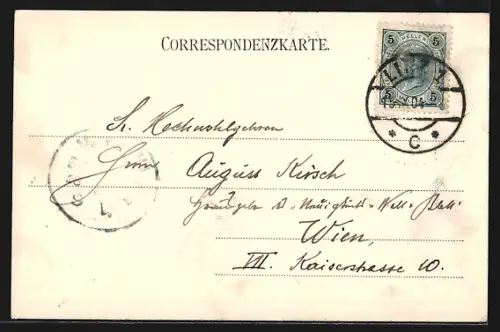 CORRESPONDENZKARTE.
5 5
HELLER
LINZ
04
5 5
* C *
Sr. Hochwohlgeboren
Herrn August Kirsch
Wien,
VII. Kaiserstrasse 10.